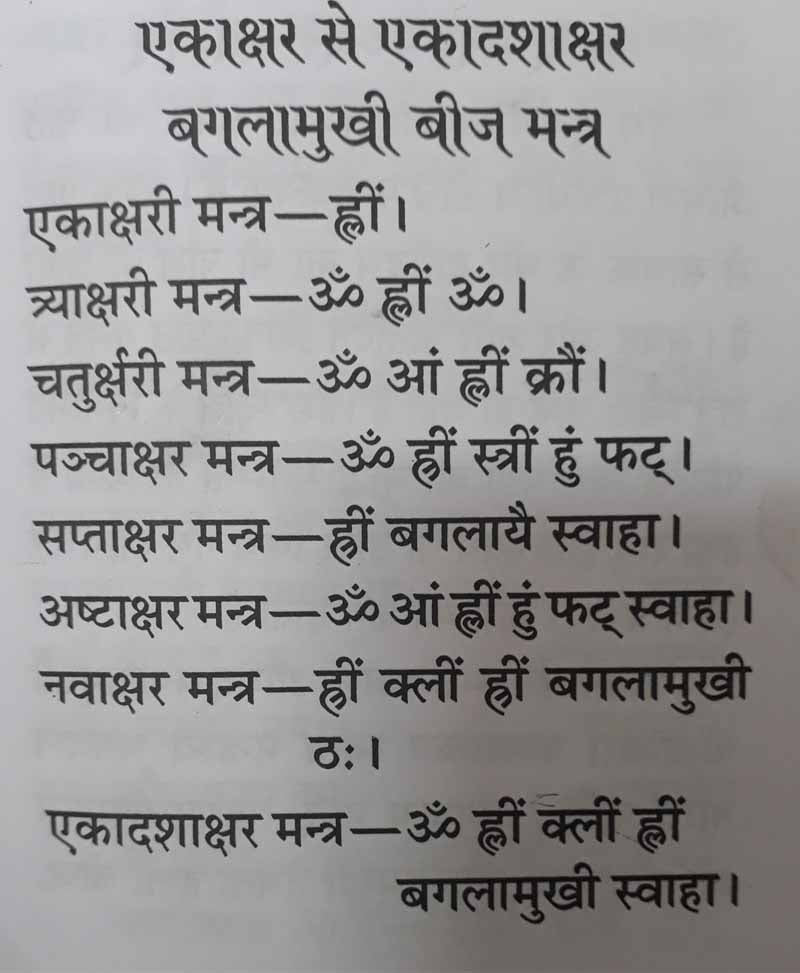 एकाक्षर से एकादशाक्षर
बगलामुखी बीज मन्त्र
एकाक्षरी मन्त्र—ह्लीं।
त्र्याक्षरी मन्त्र—ॐ ह्लीं ॐ।
चतुर्क्षरी मन्त्र—ॐ आं ह्लीं क्रौं।
पञ्चाक्षर मन्त्र—ॐ ह्रीं स्त्रीं हुं फट्।
सप्ताक्षर मन्त्र—ह्रीं बगलायै स्वाहा।
अष्टाक्षर मन्त्र—ॐ आं ह्लीं हुं फट् स्वाहा।
नवाक्षर मन्त्र—ह्रीं क्लीं ह्रीं बगलामुखी
ठः।
एकादशाक्षर मन्त्र—ॐ ह्लीं क्लीं ह्लीं
बगलामुखी स्वाहा।